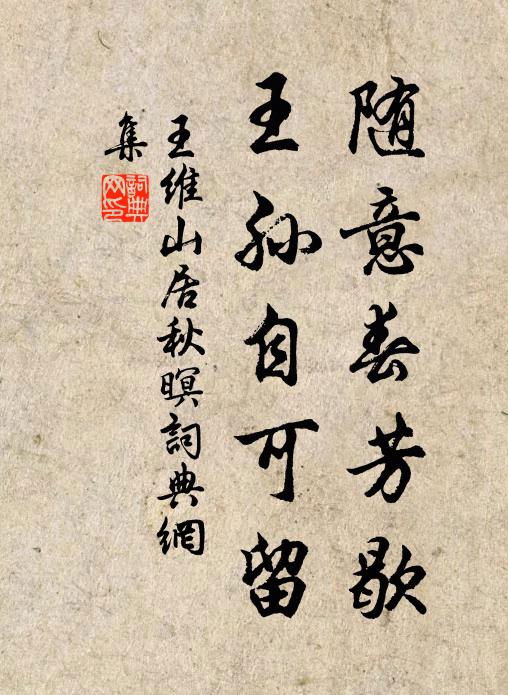 随意春芳歇
王孙自可留
王維山居秋暝詞典網
集
詞典网印